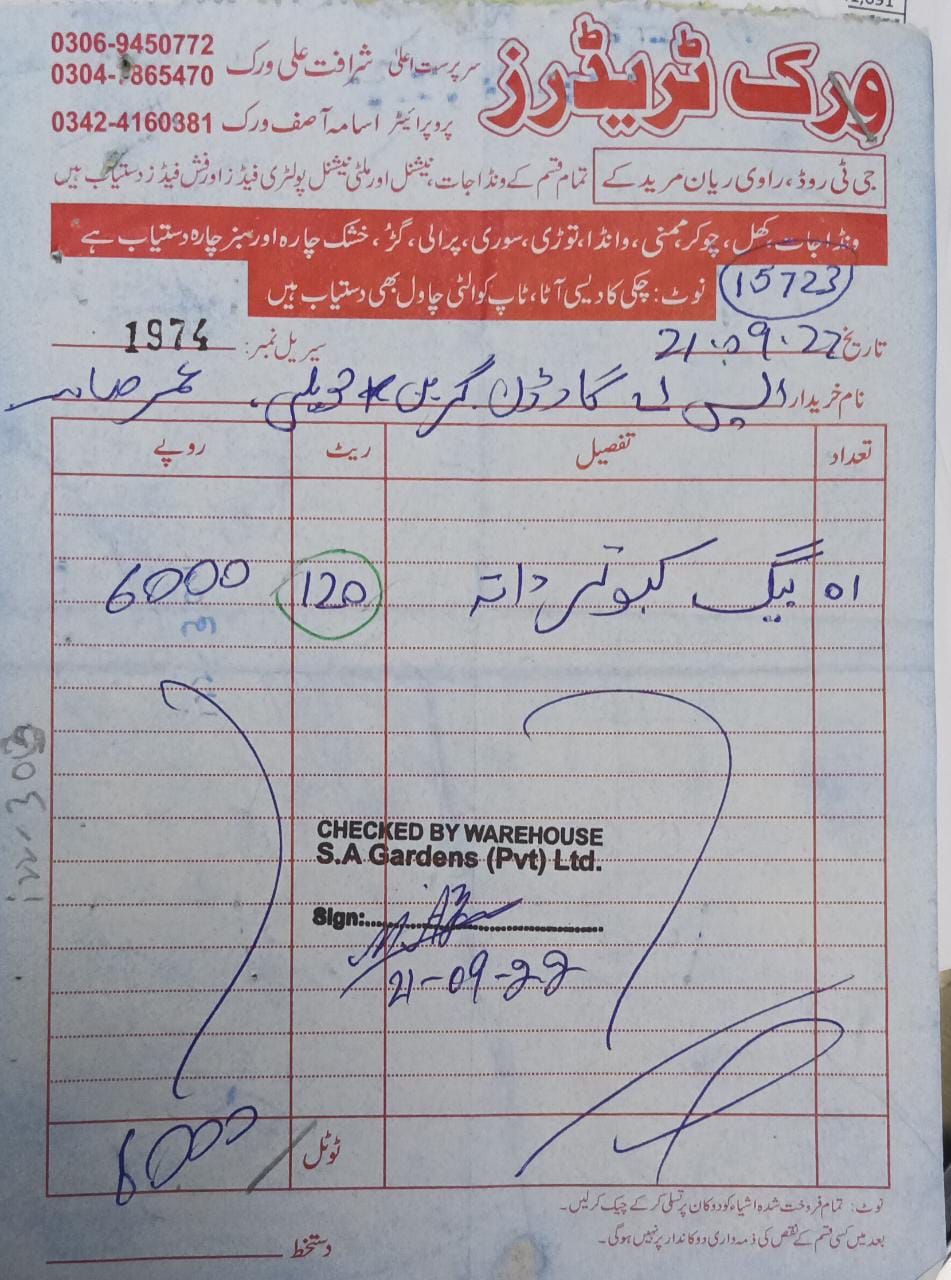 1,691
ورک ٹریڈرز
سرپرست اعلیٰ شرافت علی ورک 0306-9450772
0304-7865470
پروپرائیٹر اسامہ آصف ورک 0342-4160381
جی ٹی روڈ، راوی ریان مریدکے
تمام قسم کے ونڈا جات، نیشنل اور ملٹی نیشنل پولٹری فیڈز اور فش فیڈز دستیاب ہیں
ونڈا جات، کھل، چوکر، ممنی، وانڈا، توڑی، سوری، پرالی، گڑ، خشک چارہ اور سبز چارہ دستیاب ہے
نوٹ: چکی کا دیسی آٹا، ٹاپ کوالٹی چاول بھی دستیاب ہیں
15723
تاریخ 21.09.22 سیریل نمبر: 1974
نام خریدار ایس اے گارڈن گرین حویلی۔ عمر صاحب
تعداد تفصیل ریٹ روپے
01 بیگ کبوتر دانہ 120 6000
CHECKED BY WAREHOUSE
S.A Gardens (Pvt) Ltd.
Sign:
21-09-22
ٹوٹل 6000
نوٹ: تمام فروخت شدہ اشیاء کو دوکان پر تسلی کر کے چیک کر لیں۔
بعد میں کسی قسم کے نقص کی ذمہ داری دوکاندار پر نہیں ہوگی۔
دستخط